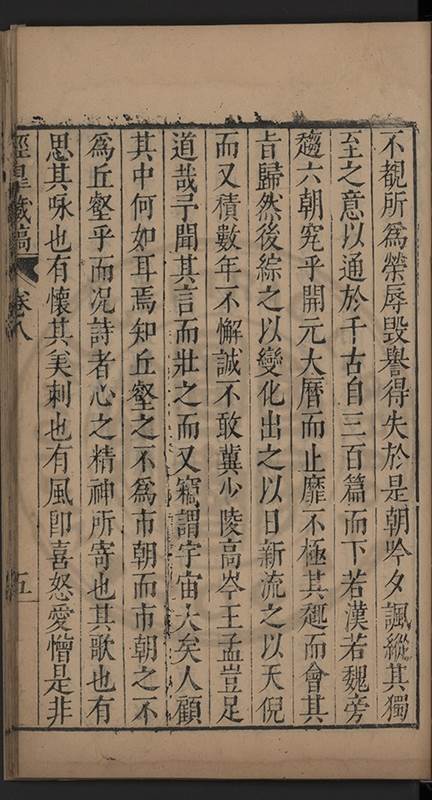 不覩所為榮辱毀譽得失於是朝吟夕諷縱其獨
至之意以通於千古自三百篇而下若漢若魏旁
趨六朝究乎開元大曆而止靡不極其趣而會其
旨歸然後綜之以變化出之以日新流之以天倪
而又積數年不懈誠不敢冀少陵高岑王孟豈足
道哉予聞其言而壯之而又竊謂宇宙大矣人顧
其中何如耳焉知丘壑之不為市朝而市朝之不
為丘壑乎而况詩者心之精神所寄也其歌也有
思其咏也有懷其美刺也有風即喜怒愛憎是非
徑皇藏稿
卷八
五